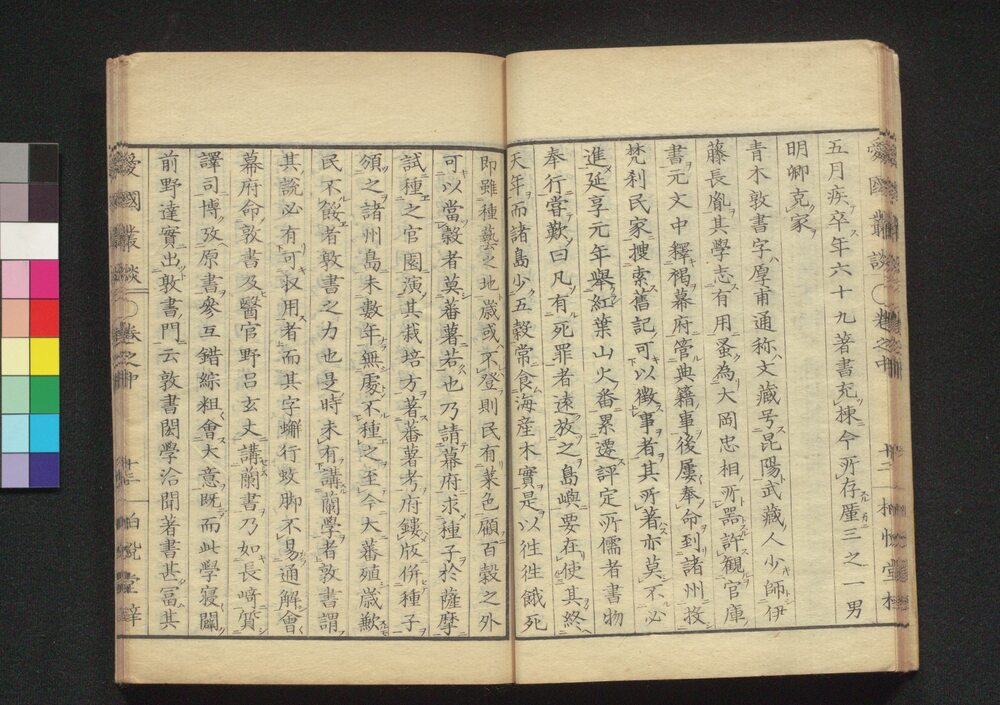 五月疾卒年六十九著書充棟今所存厪三之一男
明卿克家
青木敦書字厚甫通称文藏号昆陽武藏人少師伊
藤長胤其學志有用蚤為大岡忠相所器許観官庫
書元文中釋褐幕府管典籍事後屢奉命到諸州技
梵利民家搜索舊記可以徴事者其所著亦莫不必
進延享元年舉紅葉山火番累遷評定所儒者書物
奉行嘗歎曰凡有死罪者遠放之島嶼要在使其終
天年而諸島少五穀常食海産木實是以徃徃餓死
即雖種藝之地歳或不登則民有菜色顧百穀之外
可以當穀者莫蕃薯若也乃請幕府求種子於薩摩
試種之官園演其栽培方著蕃薯考府鏤版併種子
頒之諸州島未數年無處不種之至今大蕃殖歳歉
民不餒者敦書之力也是時未有講蘭學者敦書謂
其説必有可取用者而其字蠏行蚊脚不易通解會
幕府命敦書及醫官野呂玄丈講蘭書乃如長﨑質
譯司博攷原書參互錯綜粗會大意既而此學寝闢
前野達實出敦書門云敦書閎學洽聞著書甚冨其
愛國叢談 〇卷之中